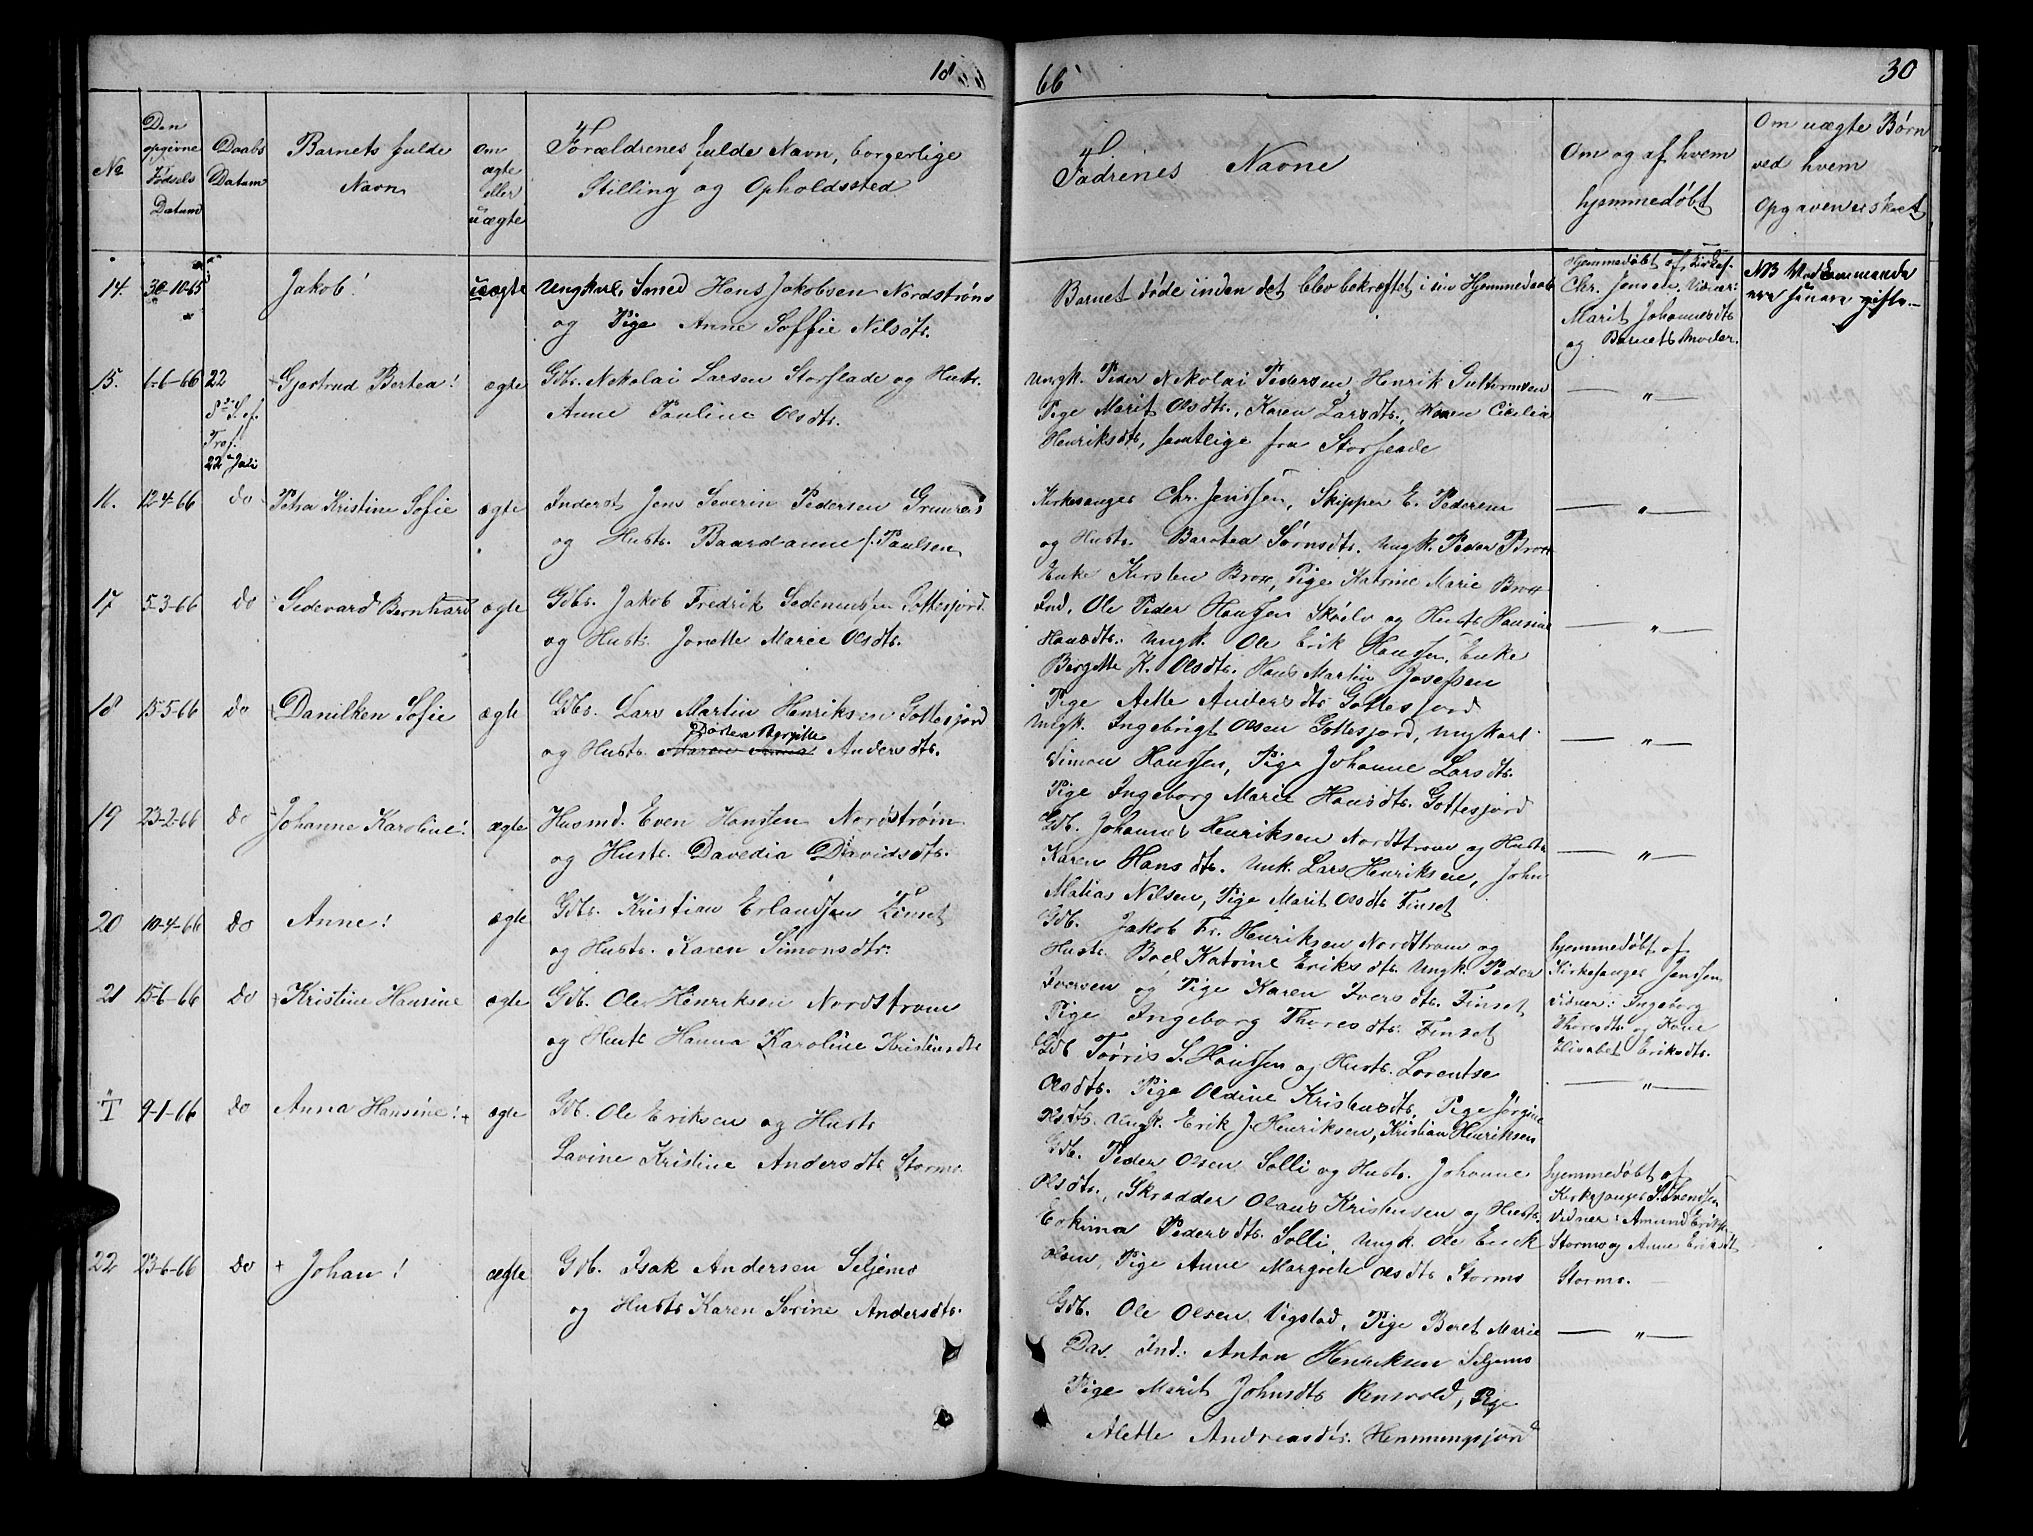 1866
30
No
Den opgivne Fødsels Datum
Daabs Datum
Barnets fulde Navn
Om ægte eller uægte
Forældrenes fulde Navn, borgerlige Stilling og Opholdssted
Fadrenes Navne
Om og af hvem hjemmedøbt
Om uægte Børn ved hvem Opgaven er skeet
14. 30-10-65 Jakob! uægte Ungkarl, Smed Hans Jakobsen Nordstrøm
og Pige Anne Soffie Nilsdtr.
Barnet døde inden det blev bekræftet i sin Hjemmedaab
Hjemmedøbt af Kirkes.
Chr. Jensen, Vidner:
Marit Johannesdtr
og Barnets Moder.
NB
ere senere gifte.
15. 1-6-66 22 Gjertrud Bertea! ægte Gdb. Nekolai Larsen Storslade og Hustr.
8de S. ef.
Tref.
22 Juli
Anne Pauline Olsdtr.
Ungk. Peder Nekolai Pedersen, Henrik Guttormsen
Pige Marit Olsdtr., Karen Larsdtr., Karen Cicilia
Henriksdtr, samtlige fra Storslade
— " —
16. 12-4-66 do Petra Kristine Sofie ægte Inderst Jens Severin Pedersen Grunreis
og Hustr. Baardanne f. Paulsen
Kirkesanger Chr. Jenssen, Skipper E. Pedersen
og Hustr. Barotea Sørnsdtr. Ungk. Peder Brox
Enke Kirsten Brox, Pige Katrine Marie Brox
— " —
17 5-3-66 do Sedevard Bernhard ægte Gdbr. Jakob Fredrik Sedeniussen Gottesjord.
og Hustr. Jonette Marie Olsdtr.
Ind. Ole Peder Hanssen Skøelv og Hustr Hansine
Hansdtr. Ungk. Ole Erik Hanssen, Enke
Bergitte K. Olsdtr. Hans Martin Josefsen
Pige Aette Andersdtr Gottesjord
— " —
18 15-5-66 do Danilken Sofie ægte Gdbr. Lars Martin Henriksen Gottesjord
Dorthea Bergitte
og Hustr. Maren Anna Andersdtr.
Ungk. Ingebrigt Olsen Gottesjord, Ungkarl
Simon Hanssen, Pige Johanne Larsdtr.
Pige Ingeborg Marie Hansdtr. Gottesjord
— " —
19 23-2-66 do Johanne Karoline! ægte Husmd. Even Hanssen Nordstrøm
og Hustr. Davedia Davidsdtr.
Gdb. Johannes Henriksen Nordstrom og Hustr
Karen Hansdtr. Unk. Lars Henriksen, John
Matias Nilsen, Pige Marit Olsdtr Finset
— " —
20 10-4-66 do Anne! ægte Gdbr. Kristian Erlandsen Finset
og Hustr. Karen Simonsdtr.
Gdb. Jakob Fr. Henriksen Nordstrom og
Hustr. Boel Katrine Eriksdtr. Ungk. Peder
Iversen og Pige Karen Iversdtr. Finset
Pige Ingeborg Thoresdtr. Finset
hjemmedøbt af
Kirkesanger Janssen
vidner: Ingeborg
Thoresdtr og Kone
Elisabet Eriksdtr.
21 15-6-66 do Kristine Hansine ægte Gdb. Ole Henriksen Nordstrom
og Hustr Hanna Karoline Kristensdtr
Gdb Tøris S. Hanssen og Hustr. Lorentse
Olsdtr. Pige Oldine Kristensdtr, Pige Jørgine
Olsdtr. Ungk. Erik J. Henriksen, Kristian Henriksen
— " —
T 9-1-66 do Anna Hansine! + ægte Gdb. Ole Eriksen og Hustr
Lavine Kristine Andersdtr Stormo
Gdb. Peder Olsen Solli og Hustr. Johanne
Olsdtr., Skrædder Olaus Kristensen og Hustr.
Erkima Pedersdtr. Solli, Ungk. Ole Erik
Olsen, Pige Anne Margrete Olsdtr Stormo
hjemmedøbt af
Kirkesanger Svendsen
vidner: Amund Eriksen
Stormo og Anne Eriksdt
Stormo.
22 23-6-66 do + Johan! ægte Gdb. Isak Andersen Seljemo
og Hustr Karen Serine Andersdtr.
Gdb. Ole Olsen Vigstad, Pige Beret Marie
Das. Ind. Anton Henriksen Seljemo
Pige Marit Johnsdtr Rensvold, Pige
Alette Andreasdtr. Hemmingsjord
— " —